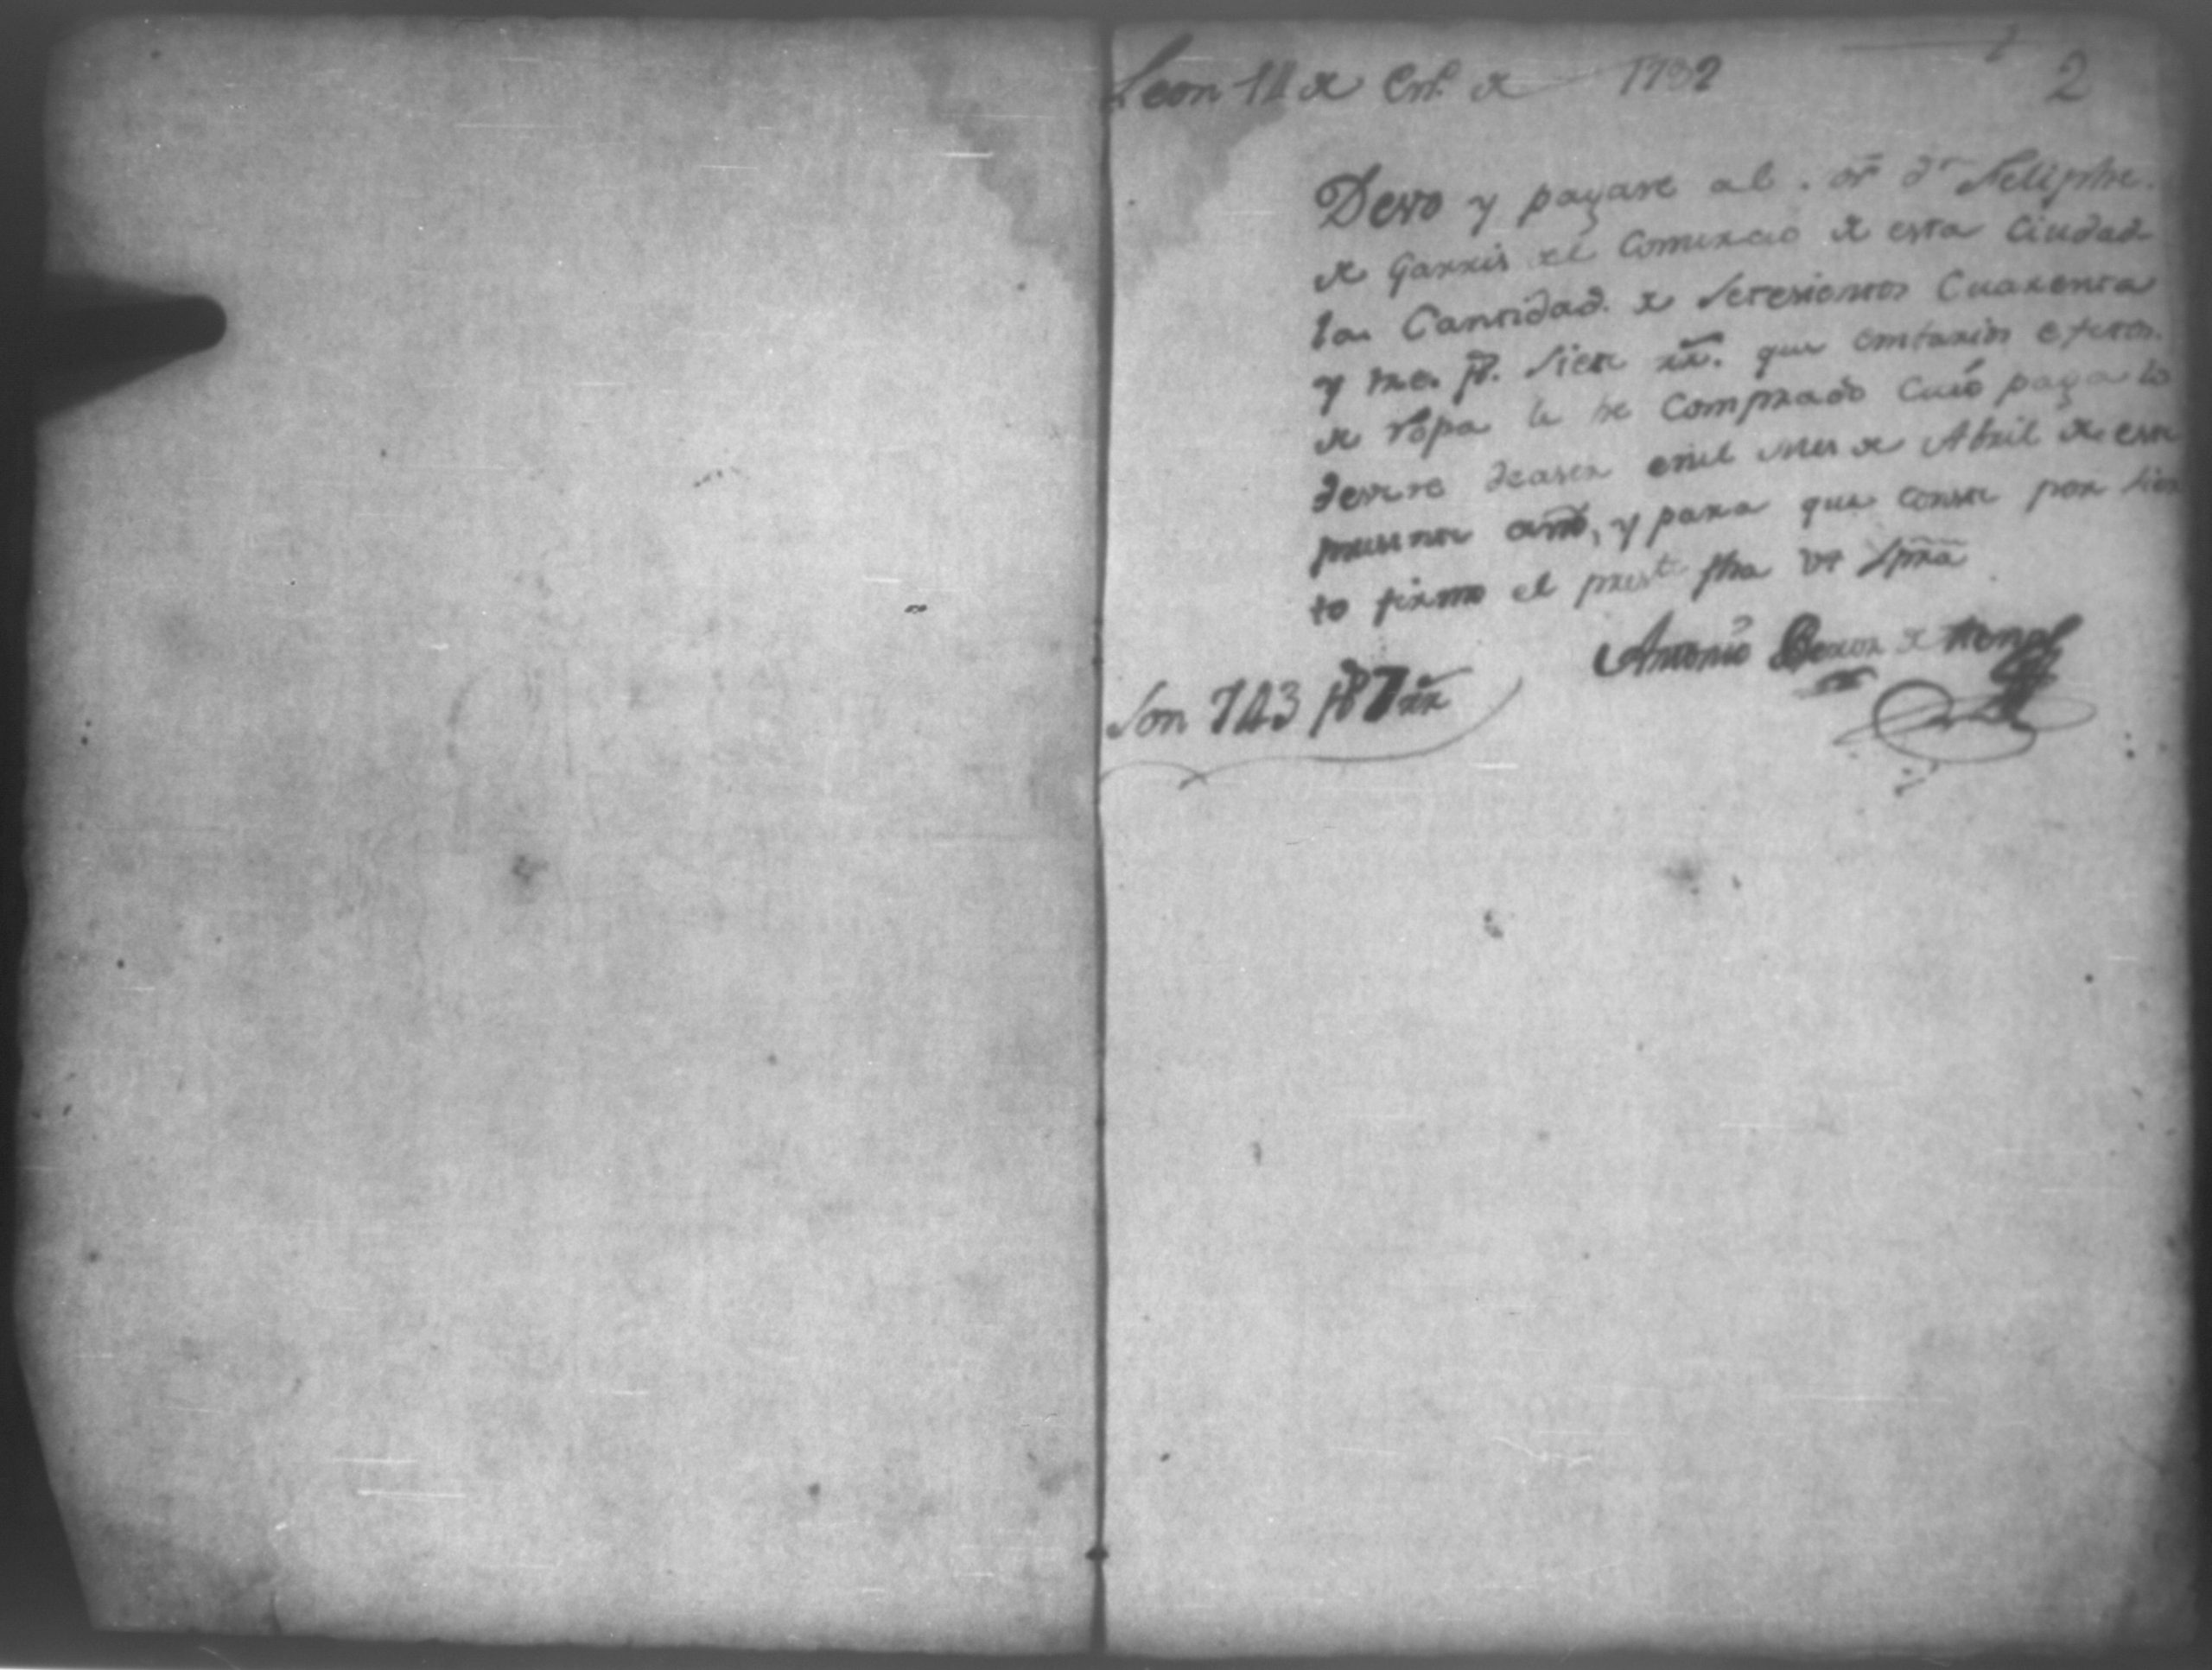 Leon 14 de En.º de 1782
2
Devo y pagare al . Sr. Dn. Feliphe
de Garris del Comercio de esta Ciudad
la Cantidad. de Setesientos Cuarenta
y tres ps. siete rr. que en efectos
de ropa le he Comprado Cuio paga lo
devere de aser en el mes de Abril de este
presente año, y para que conste por sier
to firmo el prest.e fha ut Supra
Antonio de
Son 743 ps 7 rr